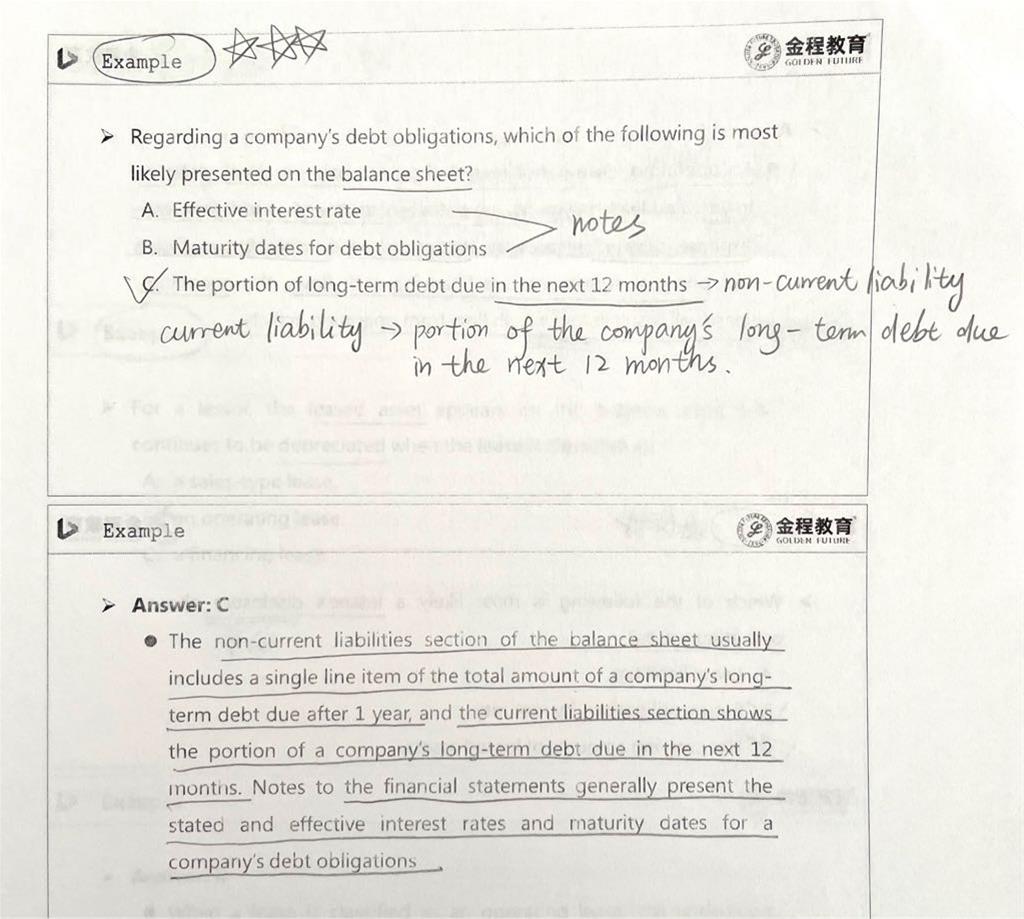 Example
金程教育
GOLDEN FUTURE
➤ Regarding a company's debt obligations, which of the following is most
likely presented on the balance sheet?
A. Effective interest rate
notes
B. Maturity dates for debt obligations
C. The portion of long-term debt due in the next 12 months → non-current liability
current liability → portion of the company's long-term debt due
in the next 12 months.
Example
金程教育
GOLDEN FUTURE
➤ Answer: C
● The non-current liabilities section of the balance sheet usually
includes a single line item of the total amount of a company's long-
term debt due after 1 year, and the current liabilities section shows
the portion of a company's long-term debt due in the next 12
months. Notes to the financial statements generally present the
stated and effective interest rates and maturity dates for a
company's debt obligations